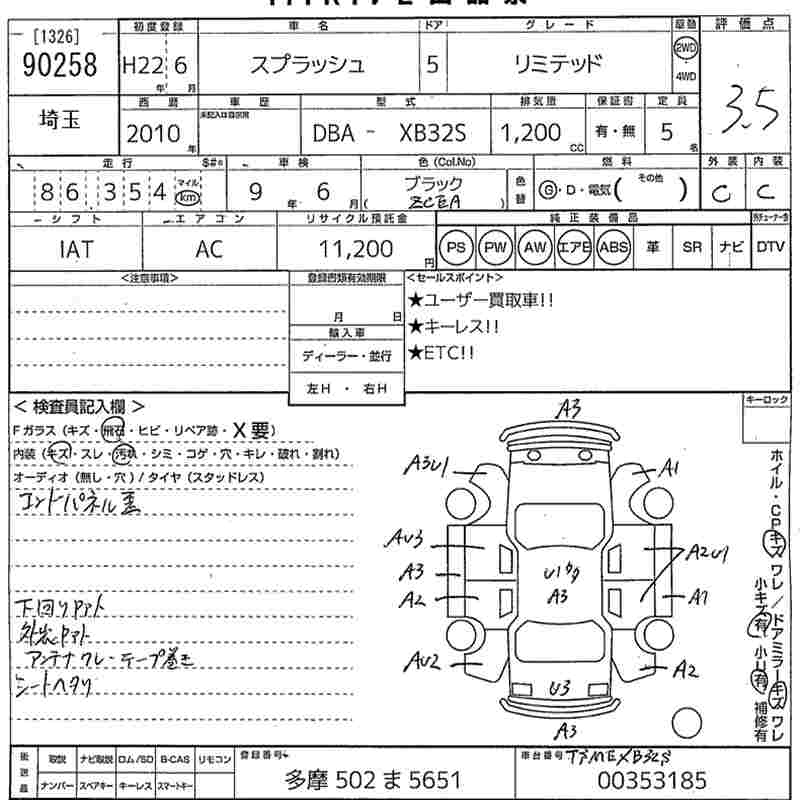 [1326]
90258
初度登録
車名
ドア
グレード
駆動
評価点
H22 6
年 月
スプラッシュ
5
リミテッド
2WD
4WD
3.5
埼玉
西暦
車歴
型式
排気量
保証書
定員
2010 年
未記入は自家用
DBA - XB32S
1,200 CC
有・無
5 名
走行
$#*
車検
色(Col.No)
燃料
外装
内装
86,354
マイル
km
9 年 6 月
ブラック
( ZCEA )
色替
G・D・電気( その他 )
C
C
シフト
エアコン
リサイクル預託金
純正装備品
IAT
AC
11,200 円
PS PW AW エアB ABS 革 SR ナビ DTV
<注意事項>
登録書類有効期限
月 日
輸入車
ディーラー・並行
左H ・ 右H
<セールスポイント>
★ユーザー買取車!!
★キーレス!!
★ETC!!
< 検査員記入欄 >
Fガラス (キズ・飛石・ヒビ・リペア跡・X要)
内装 (キズ・スレ・汚れ・シミ・コゲ・穴・キレ・破れ・割れ)
オーディオ (無し・穴) / タイヤ (スタッドレス)
下回りサビ
アンテナワレ・テープ巻き
シートヘタリ
キーロック
A3
A3U1
A1
AU3
A2U1
A3
U1
A3
A2
A1
AU2
A2
U3
A3
ホイル・CPキズ ワレ / ドアミラーキズ ワレ
小キズ有 小U有 補修有
後送品
取説 ナビ取説 ロム/SD B-CAS リモコン
ナンバー スペアキー キーレス スマートキー
登録番号
多摩 502 ま 5651
車台番号 TSMEXB32S
00353185